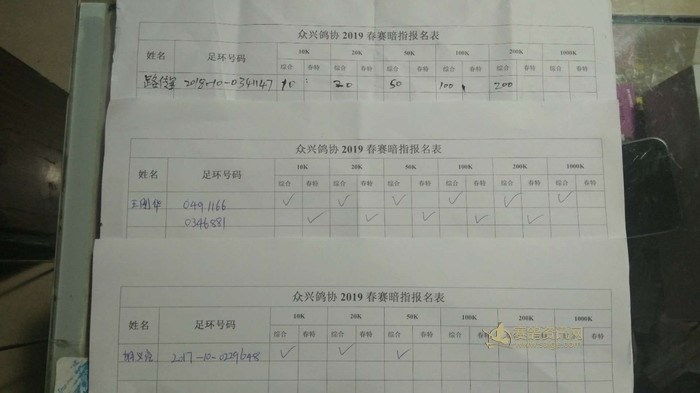 众兴鸽协 2019 春赛暗指报名表
姓名 足环号码 10K 20K 50K 100K 200K 1000K
综合 春特 综合 春特 综合 春特 综合 春特 综合 春特 综合 春特
2018-10-0341147 10 20 50 100 200
众兴鸽协 2019 春赛暗指报名表
姓名 足环号码 10K 20K 50K 100K 200K 1000K
综合 春特 综合 春特 综合 春特 综合 春特 综合 春特 综合 春特
王刚华 0491166 ✓ ✓ ✓ ✓ ✓ ✓
0346881 ✓ ✓ ✓ ✓ ✓
众兴鸽协 2019 春赛暗指报名表
姓名 足环号码 10K 20K 50K 100K 200K 1000K
综合 春特 综合 春特 综合 春特 综合 春特 综合 春特 综合 春特
2017-10-0229648 ✓ ✓ ✓